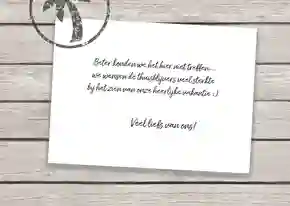 Beter konden we het hier niet treffen...
we wensen de thuisblijvers veel sterkte
bij het zien van onze heerlijke vakantie ;)
Veel liefs van ons!